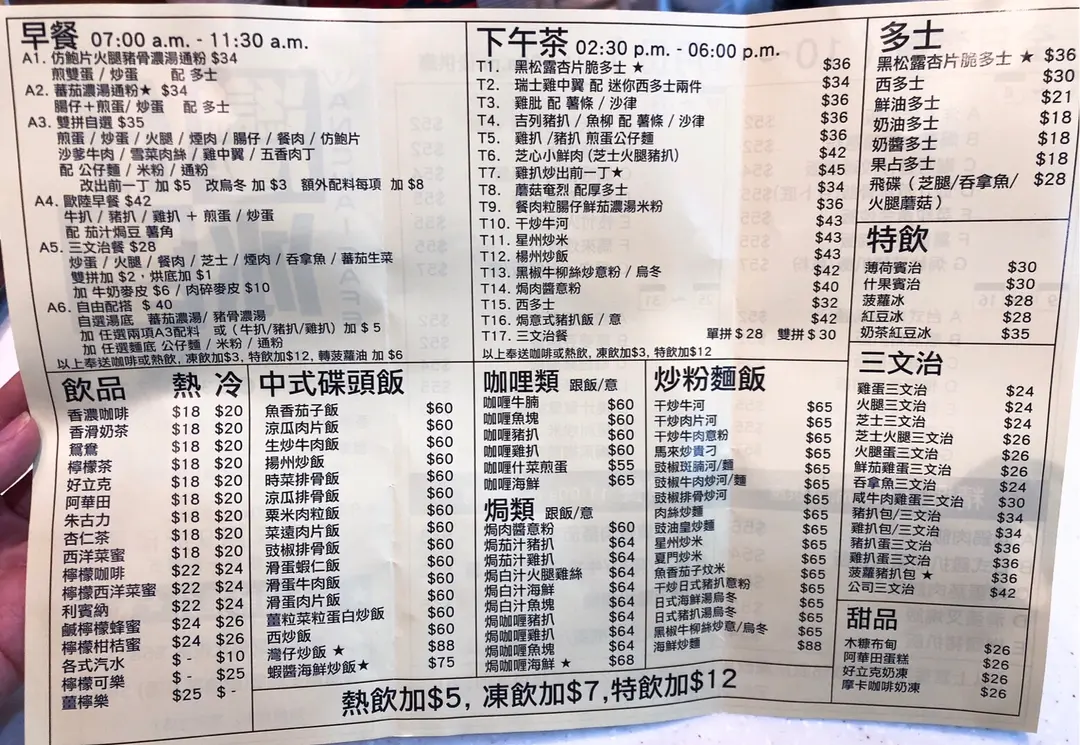 早餐 07:00 a.m. - 11:30 a.m.
A1. 仿鮑片火腿豬骨濃湯通粉 $34
煎雙蛋 / 炒蛋 配 多士
A2. 蕃茄濃湯通粉★ $34
腸仔＋煎蛋/ 炒蛋 配 多士
A3. 雙拼自選 $35
煎蛋 / 炒蛋 / 火腿 / 煙肉 / 腸仔 / 餐肉 / 仿鮑片
沙爹牛肉 / 雪菜肉絲 / 雞中翼 / 五香肉丁
配 公仔麵 / 米粉 / 通粉
改出前一丁 加 $5 改烏冬 加 $3 額外配料每項 加 $8
A4. 歐陸早餐 $42
牛扒 / 豬扒 / 雞扒 ＋ 煎蛋 / 炒蛋
配 茄汁焗豆 薯角
A5. 三文治餐 $28
炒蛋 / 火腿 / 餐肉 / 芝士 / 煙肉 / 吞拿魚 / 蕃茄生菜
雙拼加 $2，烘底加 $1
加 牛奶麥皮 $6 / 肉碎麥皮 $10
A6. 自由配搭 $ 40
自選湯底 蕃茄濃湯/ 豬骨濃湯
加 任選兩項A3配料 或 (牛扒/豬扒/雞扒) 加 $ 5
加 任選麵底 公仔麵 / 米粉 / 通粉
以上奉送咖啡或熱飲, 凍飲加$3, 特飲加$12, 轉菠蘿油 加 $6
下午茶 02:30 p.m. - 06:00 p.m.
T1. 黑松露杏片脆多士 ★ $36
T2. 瑞士雞中翼 配 迷你西多士兩件 $34
T3. 雞肶 配 薯條 / 沙律 $36
T4. 吉列豬扒 / 魚柳 配 薯條 / 沙律 $36
T5. 雞扒 /豬扒 煎蛋公仔麵 $36
T6. 芝心小鮮肉 (芝士火腿豬扒) $42
T7. 雞扒炒出前一丁★ $45
T8. 蘑菇奄烈 配厚多士 $34
T9. 餐肉粒腸仔鮮茄濃湯米粉 $36
T10. 干炒牛河 $43
T11. 星州炒米 $43
T12. 楊州炒飯 $43
T13. 黑椒牛柳絲炒意粉 / 烏冬 $42
T14. 焗肉醬意粉 $40
T15. 西多士 $32
T16. 焗意式豬扒飯 / 意 $42
T17. 三文治餐 單拼 $28 雙拼 $30
以上奉送咖啡或熱飲, 凍飲加$3, 特飲加$12
多士
黑松露杏片脆多士 ★ $36
西多士 $30
鮮油多士 $21
奶油多士 $18
奶醬多士 $18
果占多士 $18
飛碟（芝腿/吞拿魚/ $28
火腿蘑菇）
特飲
薄荷賓治 $30
什果賓治 $30
菠蘿冰 $28
紅豆冰 $28
奶茶紅豆冰 $35
三文治
雞蛋三文治 $24
火腿三文治 $24
芝士三文治 $24
芝士火腿三文治 $26
火腿蛋三文治 $26
鮮茄雞蛋三文治 $26
吞拿魚三文治 $24
咸牛肉雞蛋三文治 $30
豬扒包/三文治 $34
雞扒包/三文治 $34
豬扒蛋三文治 $36
雞扒蛋三文治 $36
菠蘿豬扒包 ★ $36
公司三文治 $42
甜品
木糠布甸 $26
阿華田蛋糕 $26
好立克奶凍 $26
摩卡咖啡奶凍 $26
飲品 熱 冷
香濃咖啡 $18 $20
香滑奶茶 $18 $20
鴛鴦 $18 $20
檸檬茶 $18 $20
好立克 $18 $20
阿華田 $18 $20
朱古力 $18 $20
杏仁茶 $18 $20
西洋菜蜜 $18 $20
檸檬咖啡 $22 $24
檸檬西洋菜蜜 $22 $24
利賓納 $22 $24
鹹檸檬蜂蜜 $24 $26
檸檬柑桔蜜 $24 $26
各式汽水 $ - $10
檸檬可樂 $ - $25
薑檸樂 $25 $ -
中式碟頭飯
魚香茄子飯 $60
涼瓜肉片飯 $60
生炒牛肉飯 $60
揚州炒飯 $60
時菜排骨飯 $60
涼瓜排骨飯 $60
粟米肉粒飯 $60
菜遠肉片飯 $60
豉椒排骨飯 $60
滑蛋蝦仁飯 $60
滑蛋牛肉飯 $60
滑蛋肉片飯 $60
薑粒菜粒蛋白炒飯 $60
西炒飯 $60
灣仔炒飯 ★ $88
蝦醬海鮮炒飯★ $75
咖哩類 跟飯/意
咖哩牛腩 $60
咖哩魚塊 $60
咖哩豬扒 $60
咖哩雞扒 $60
咖哩什菜煎蛋 $55
咖哩海鮮 $65
焗類 跟飯/意
焗肉醬意粉 $60
焗茄汁豬扒 $64
焗茄汁雞扒 $64
焗白汁火腿雞絲 $64
焗白汁海鮮 $64
焗白汁魚塊 $64
焗咖哩豬扒 $64
焗咖哩雞扒 $64
焗咖哩魚塊 $64
焗咖哩海鮮 ★ $68
炒粉麵飯
干炒牛河 $65
干炒肉片河 $65
干炒牛肉意粉 $65
馬來炒貴刁 $65
豉椒斑腩河/麵 $65
豉椒牛肉炒河/麵 $65
豉椒排骨炒河 $65
肉絲炒麵 $65
豉油皇炒麵 $65
星州炒米 $65
夏門炒米 $65
魚香茄子炆米 $65
干炒日式豬扒意粉 $65
日式海鮮湯烏冬 $65
日式豬扒湯烏冬 $65
黑椒牛柳絲炒意/烏冬 $65
海鮮炒麵 $88
熱飲加$5, 凍飲加$7,特飲加$12